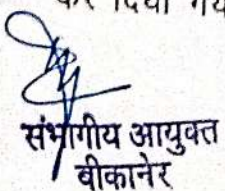 कर दिया गय
संभागीय आयुक्त
बीकानेर